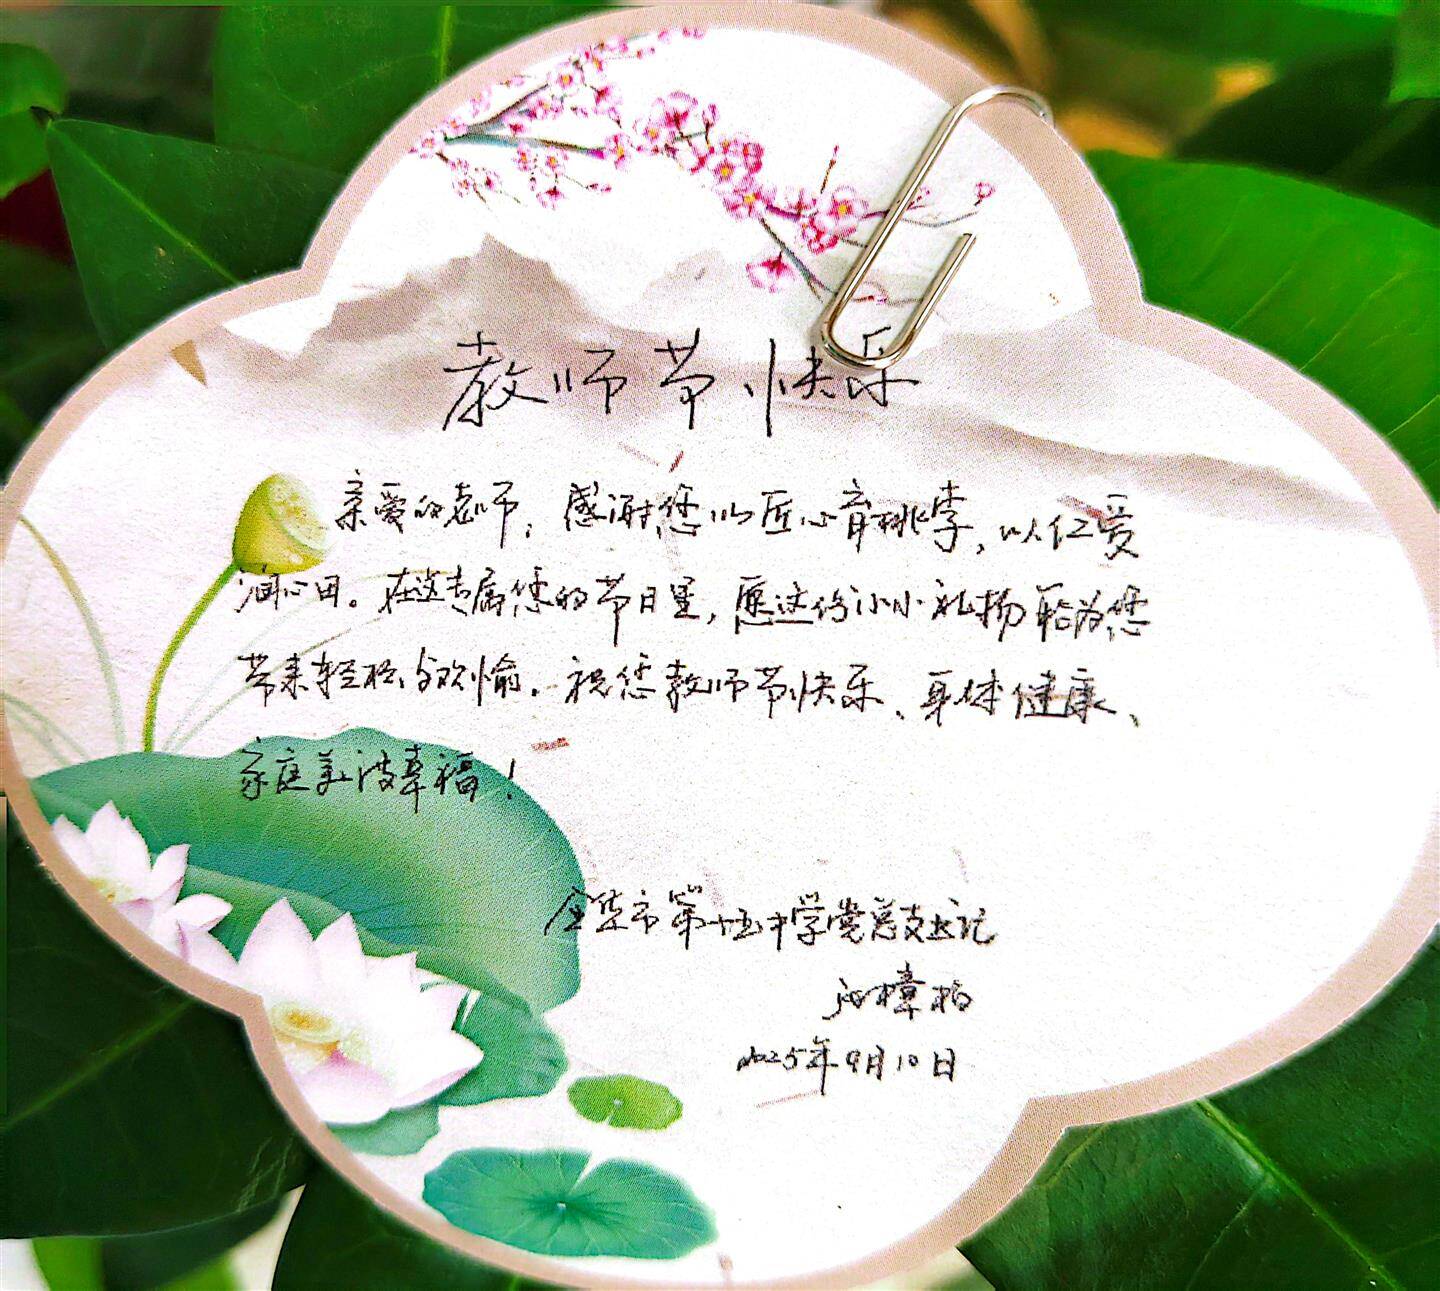 教师节快乐
亲爱的老师，感谢您以匠心育桃李，以仁爱
润心田。在这专属您的节日里，愿这份小小礼物能为您
带来轻松与欢愉。祝您教师节快乐、身体健康、
家庭美满幸福！
金华市第十五中学党总支书记
樟柏
2025年9月10日